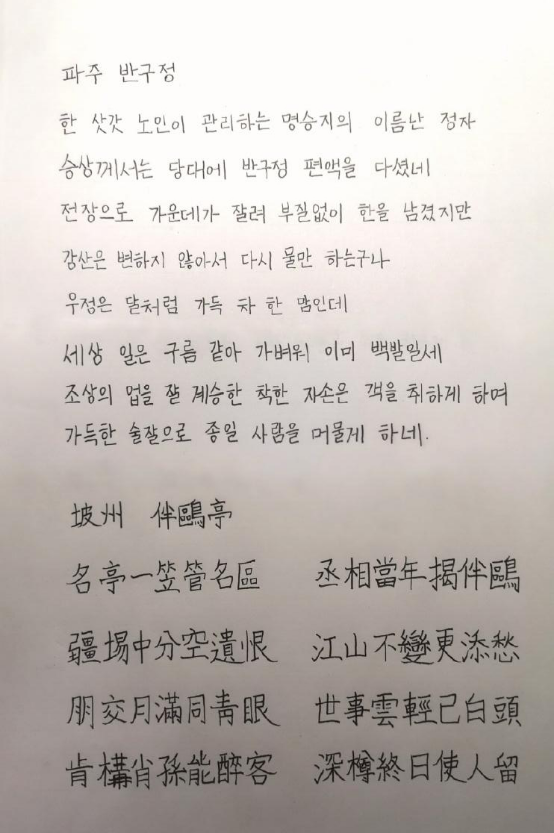 파주 반구정
한 삿갓 노인이 관리하는 명승지의 이름난 정자
승상께서는 당대에 반구정 편액을 다셨네
전장으로 가운데가 잘려 부질없이 한을 남겼지만
강산은 변하지 않아서 다시 물만 하는구나
우정은 달처럼 가득 차 한 맘인데
세상 일은 구름 같아 가벼워 이미 백발일세
조상의 업을 잘 계승한 착한 자손은 객을 취하게 하며
가득한 술잘으로 종일 사람을 머물게 하네.
坡州 伴鷗亭
名亭一笠管名區 丞相當年揭伴鷗
疆場中分空遺恨 江山不變更添愁
朋交月滿同靑眼 世事雲輕已白頭
肯構肖孫能醉客 深樽終日使人留